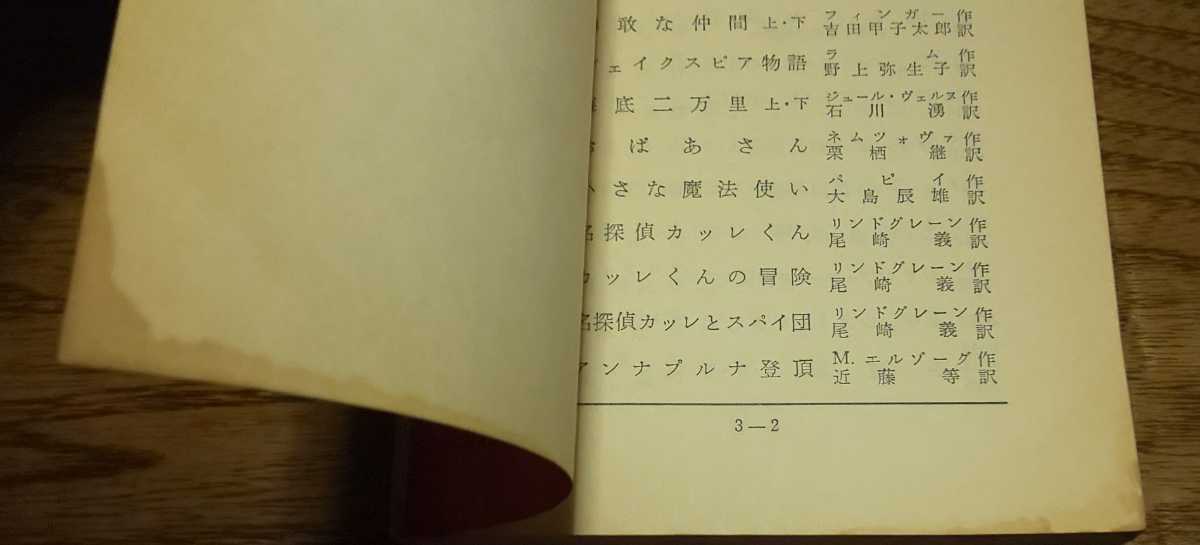 敢な仲間 上・下 フィンガー作
吉田甲子太郎訳
ェイクスピア物語 ラム作
野上弥生子訳
底二万里 上・下 ジュール・ヴェルヌ作
石川湧訳
ばあさん ネムツォヴァ作
栗栖継訳
さな魔法使い パピイ作
大島辰雄訳
名探偵カッレくん リンドグレーン作
尾崎義訳
カッレくんの冒険 リンドグレーン作
尾崎義訳
名探偵カッレとスパイ団 リンドグレーン作
尾崎義訳
アンナプルナ登頂 M.エルゾーグ作
近藤等訳
3—2